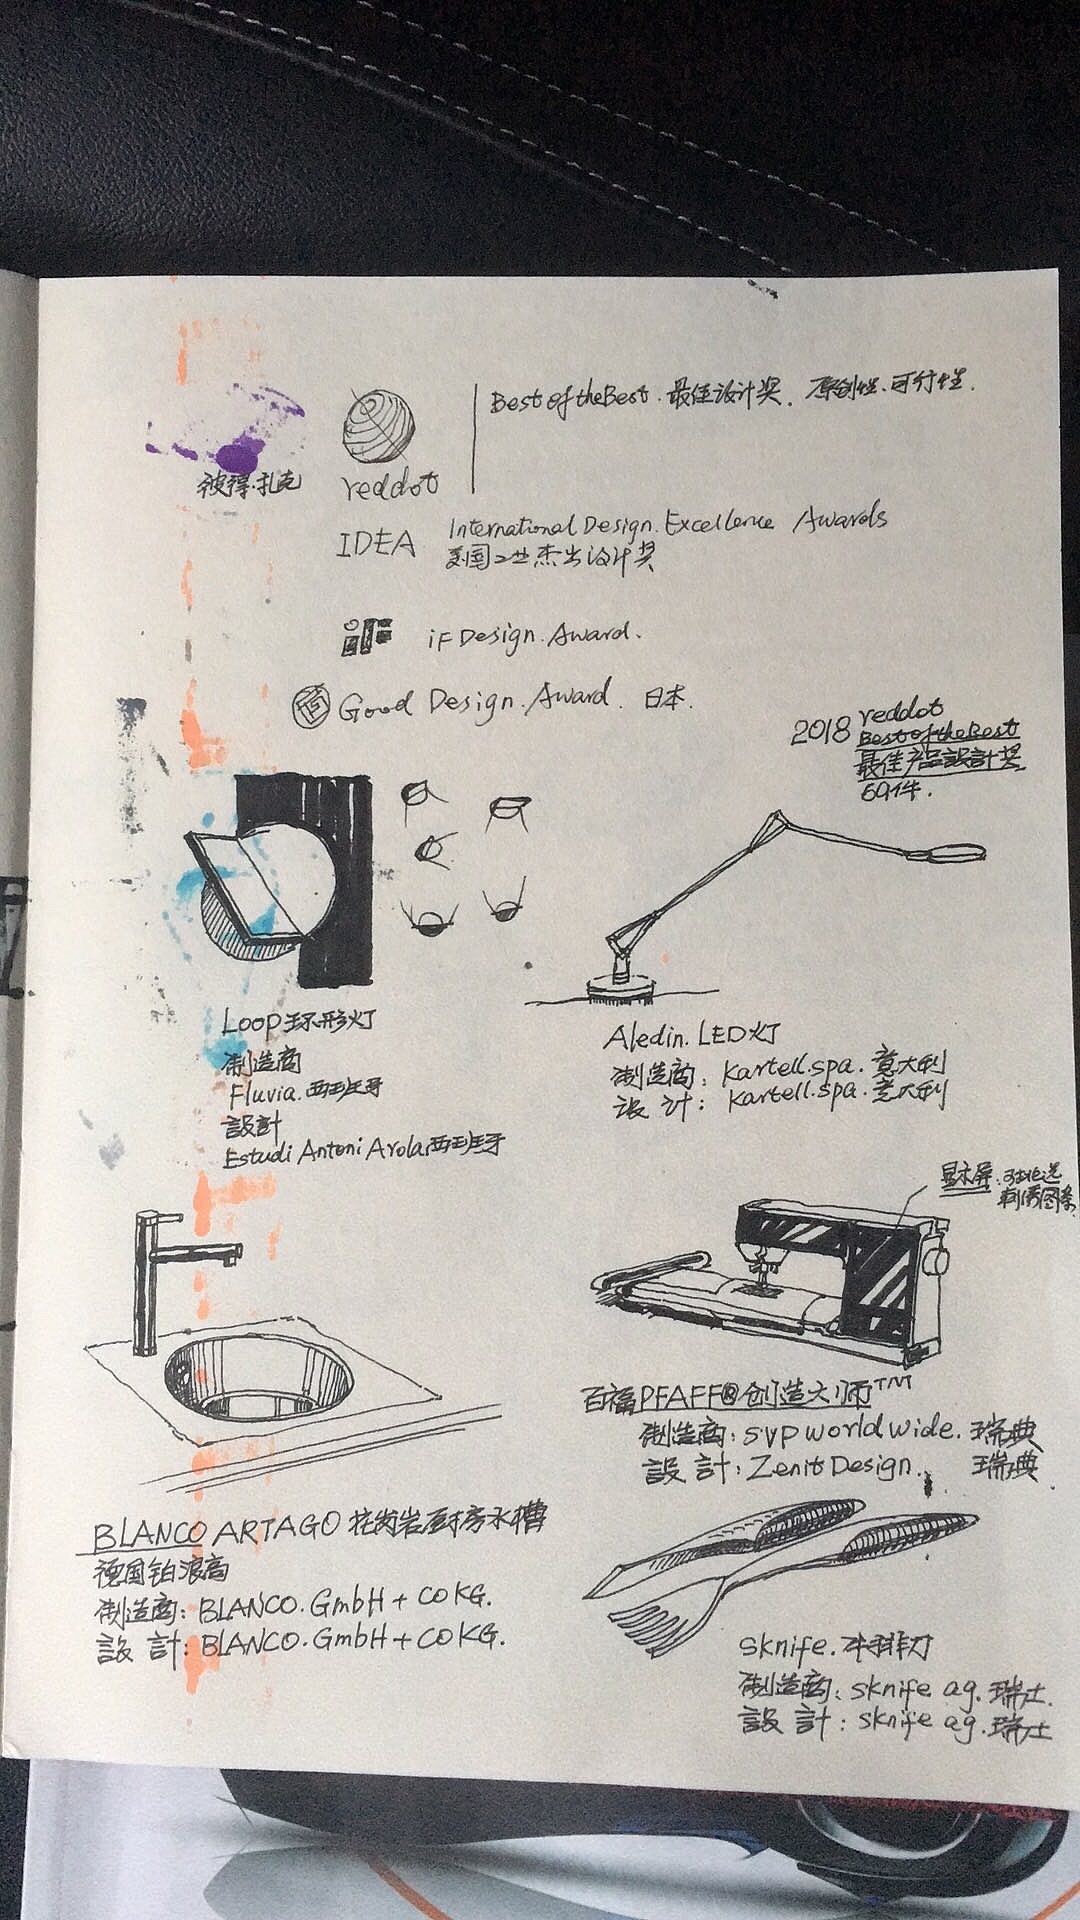 Best of the Best. 最佳设计奖. 原创性.可行性.
彼得.扎克
reddot
IDEA
International Design. Excellence Awards
美国工业杰出设计奖
iF
iF Design. Award.
Good Design. Award. 日本.
2018 reddot
Best of the Best
最佳产品設計奖
69件.
Loop环形灯
制造商
Fluvia. 西班牙
設計
Estudi Antoni Arola.西班牙
Aledin. LED灯
制造商: Kartell.spa. 意大利
设计: Kartell.spa. 意大利
显示屏.可挑选
刺绣图案
百福PFAFF®创造大师™
制造商: SVP worldwide. 瑞典
設計: Zenit Design. 瑞典
BLANCO ARTAGO 花岗岩厨房水槽
德国铂浪高
制造商: BLANCO. GmbH + CO KG.
設計: BLANCO. GmbH + CO KG.
sknife. 牛排刀
制造商: sknife ag. 瑞士.
設計: sknife ag. 瑞士